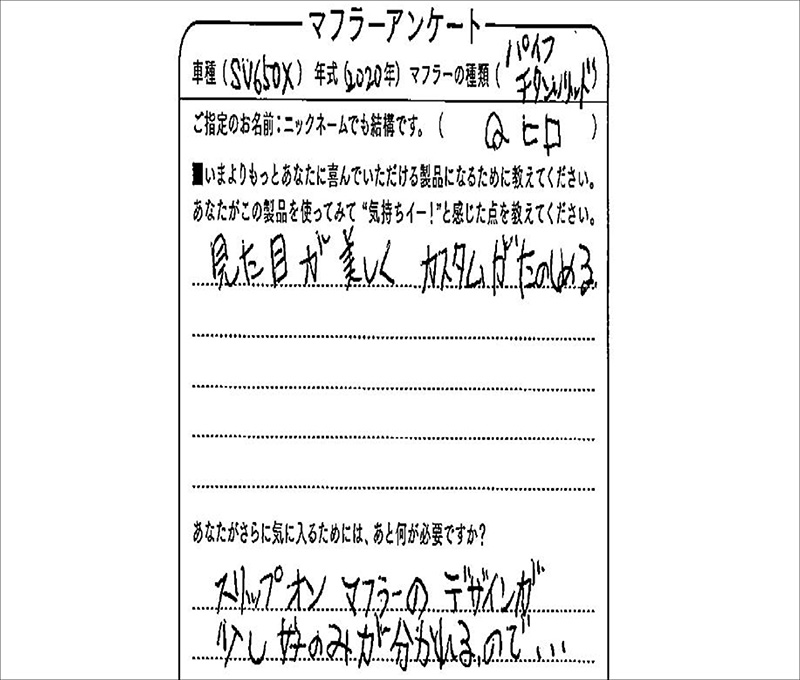 マフラーアンケート
車種（SV650X）年式（2020年）マフラーの種類（パイプチタンソリッド）
ご指定のお名前：ニックネームでも結構です。（ Qヒロ ）
■いまよりもっとあなたに喜んでいただける製品になるために教えてください。
あなたがこの製品を使ってみて“気持ちイー！”と感じた点を教えてください。
見た目が美しく カスタムがたのしめる。
あなたがさらに気に入るためには、あと何が必要ですか？
スリップオン マフラーの デザインが
少し好のみが分かれるので...